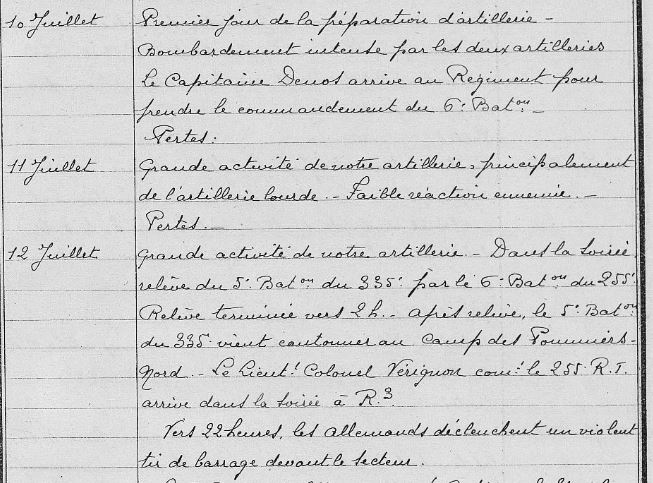 10 Juillet Premier jour de la préparation d'artillerie -
Bombardement intense par les deux artilleries
Le Capitaine Denos arrive au Régiment pour
prendre le commandement du 6e Baton -
Pertes :
11 Juillet Grande activité de notre artillerie, principalement
de l'artillerie lourde. - Faible réaction ennemie. -
Pertes. -
12 Juillet Grande activité de notre artillerie - Dans la soirée
relève du 5e Baton du 335e par le 6e Baton du 255e
Relève terminée vers 2h. - Après relève, le 5e Baton
du 335e vient cantonner au camp des Pommiers-
Nord. - Le Lieutt Colonel Verignon comt le 255 R.I.
arrive dans la soirée à R.3
Vers 22 heures, les allemands déclenchent un violent
tir de barrage devant le secteur.